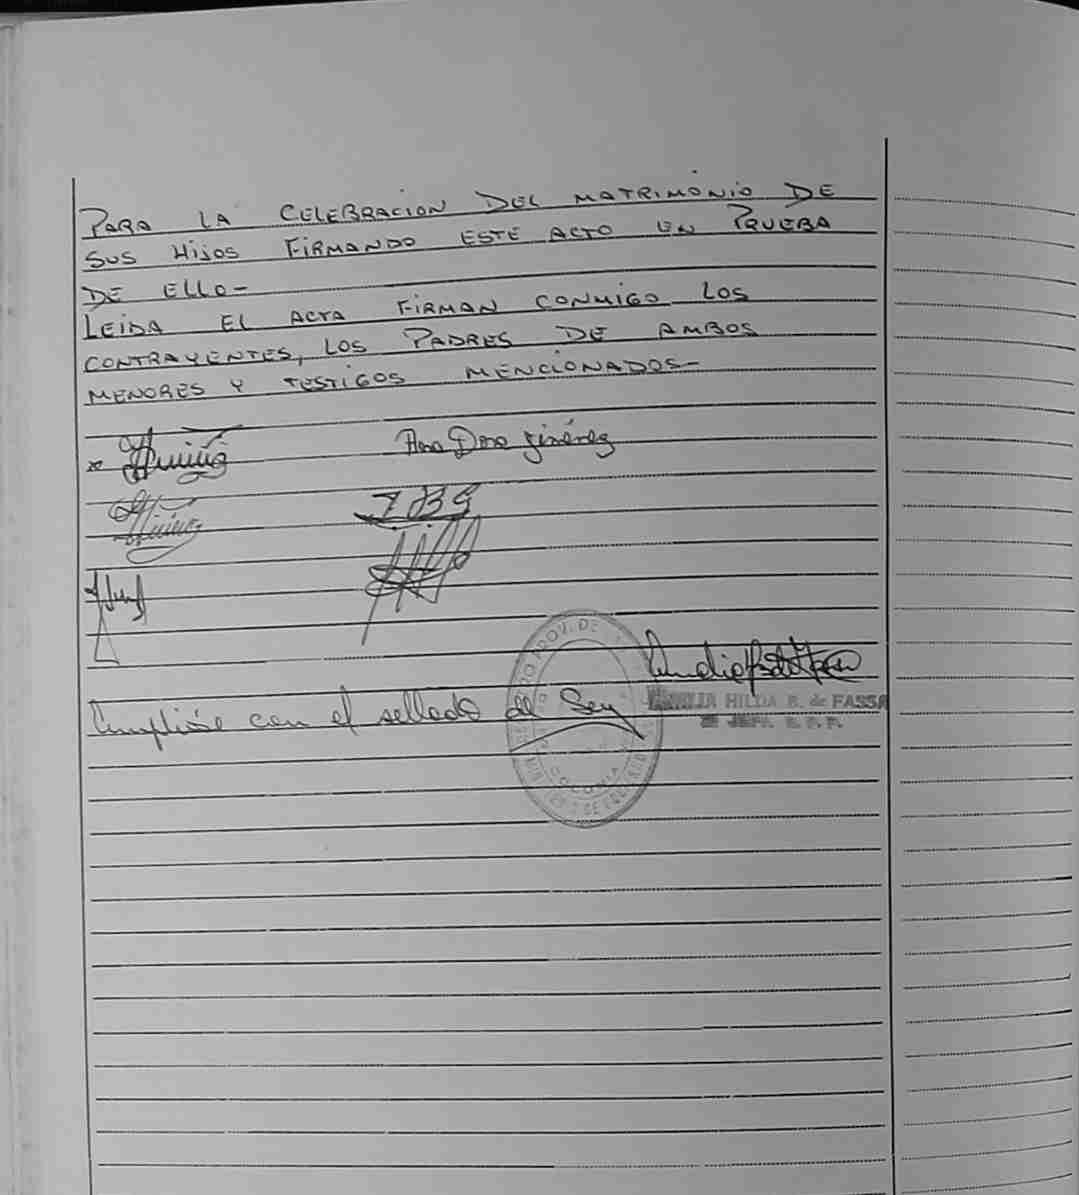 PARA LA CELEBRACION DEL MATRIMONIO DE
SUS HIJOS FIRMANDO ESTE ACTO EN PRUEBA
DE ELLO-
LEIDA EL ACTA FIRMAN CONMIGO LOS
CONTRAYENTES, LOS PADRES DE AMBOS
MENORES Y TESTIGOS MENCIONADOS-
Ana Dora Jiménez
Cumplióse con el sellado de Ley
HILDA B. de FASSA
PROV. DE
COLONIA